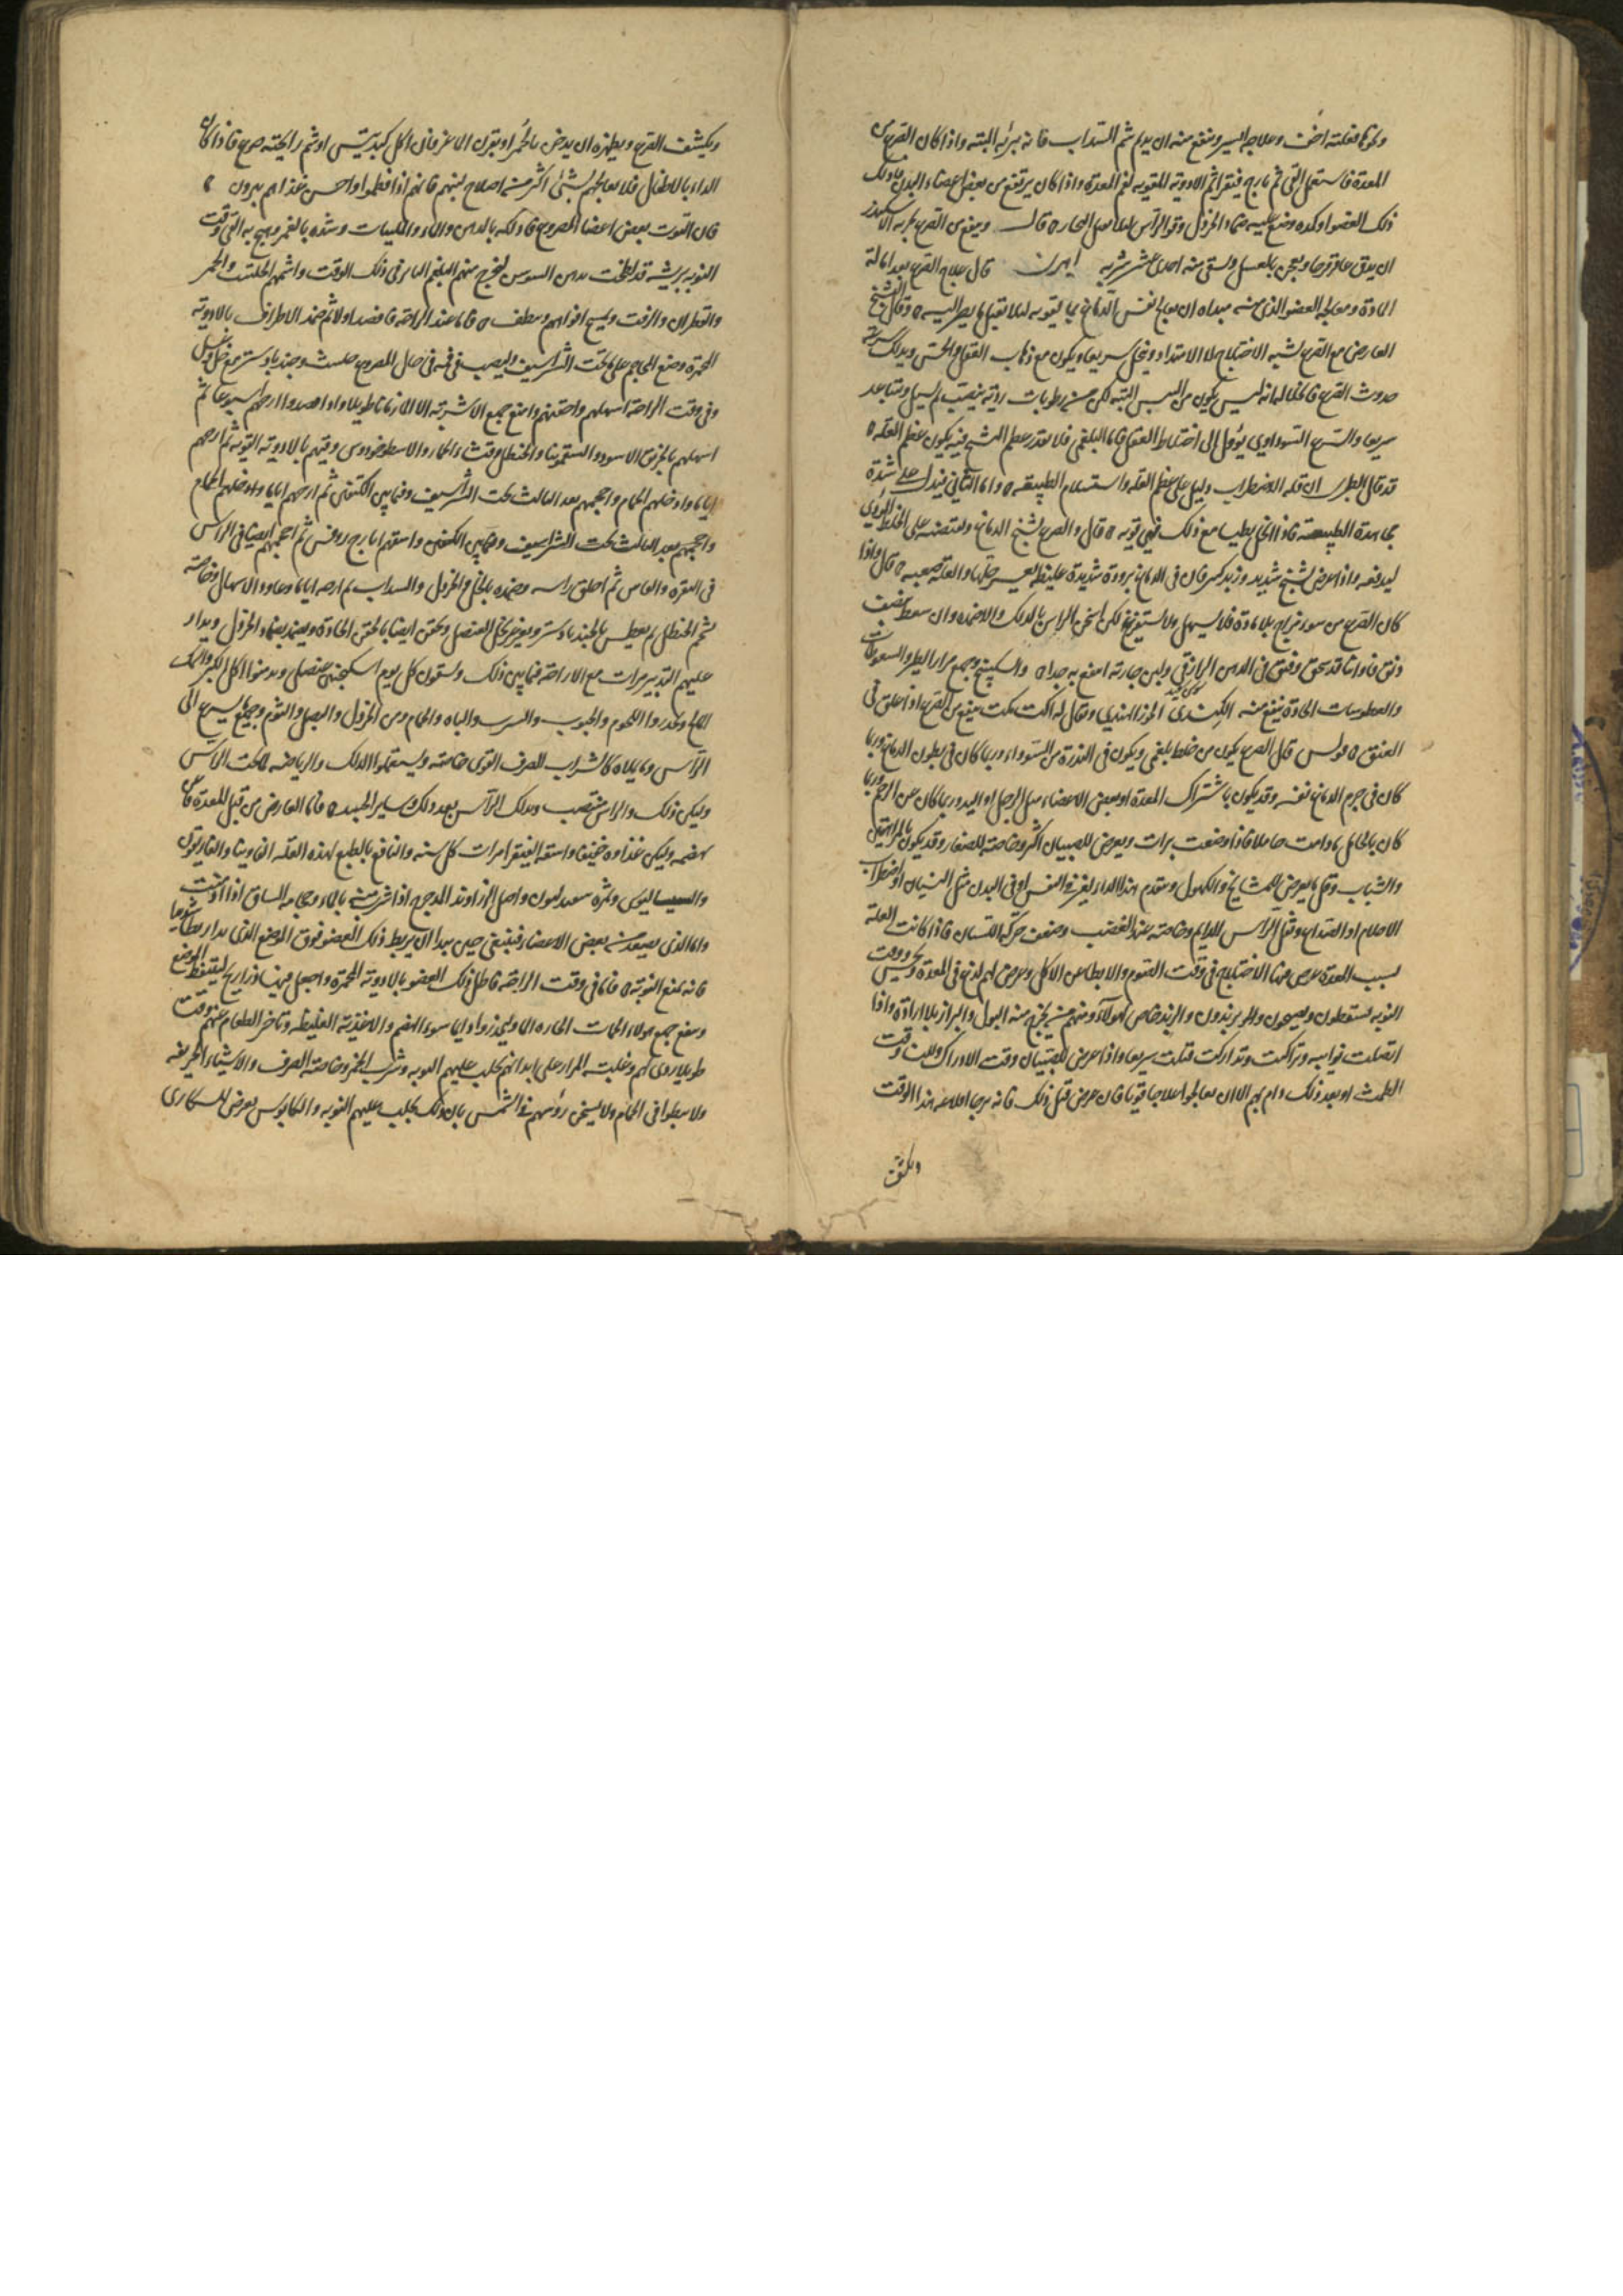 ونحوها فعلته اخف وعلاجه ايسر وينفع منه ان يدام شم السذاب فانه يبرئه البتة واذا كان الصرع من
المعدة فاستعمل القي ثم يارج فيقرا ثم الادوية المقوية لفم المعدة واذا كان يرتفع من بعض اعضاء البدن فادلك
ذلك العضو اوكده وضع عليه ضماد الخردل وقو الراس لئلا يقبل البخار قال وينفع من الصرع
ان يدق عاقرقرحا ويعجن بالعسل ويسقى منه قال علاج الصرع بعد امالة
المادة ومعالجة العضو الذي منه مبداه ان يعالج نفس الدماغ بما يقويه لئلا يقبل ما يصير اليه وقال التشنج
العارض مع الصرع شبيه الاختلاج لا الامتداد وينحل سريعا ويكون مع ذهاب العقل والحس ويدلك سرعة
حدوث الصرع وانحلاله انه ليس يكون من اليبس البتة لكن من رطوبات
سريعا والصرع السوداوي يؤول الى اختلاط العقل فاما البلغمي فلا بقدر عظم التشنج فيه يكون عظم العلة
قد قال ان قلة الاضطراب دليل على عظم العلة واستسلام الطبيعة واما الثاني فيدل على شدة
مجاهدة الطبيعة فاذا انحل بطيا مع ذلك فهي قوية قال والصرع تشنج الدماغ وتقبضه على الخلط المؤذي
ليدفعه واذا عرض تشنج شديد وزبد كثير فان في الدماغ برودة شديدة غليظة يعسر حلها والعلة صعبة قال واذا
كان الصرع من سوء مزاج بلا مادة فلا يسهل ولا يستفرغ لكن اسخن الراس بالدلك والاضمدة وان سعط بنصف
دانق فاوانيا قد سحق وفتق في الدهن الرازقي ولبن جارية انتفع به جدا والسكبينج وجميع مرارات الطير والسعوطات
والعطوسات الحادة ينفع منه الجوز الهندي ويقال له اكت مكت ينفع من الصرع اذا علق في
العنق بولس قال الصرع يكون من خلط بلغمي ويكون في الندرة من السوداء وربما كان في بطون الدماغ وربما
كان في جرم الدماغ نفسه وقد يكون باشتراك المعدة او بعض الاعضاء مثل الرجل او اليد وربما كان عن الرحم وربما
كان بالحامل ما دامت حاملا فاذا وضعت برات ويعرض للصبيان اكثر وخاصة للصغار وقد يكون بالمراهقين
والشباب وقل ما يعرض للمشايخ والكهول ويتقدم هذا الداء تغير في النفس او في البدن مثل النسيان او اضطراب
الاحلام او الصداع وثقل الراس الدايم وخاصة عند الغضب وضعف حركة اللسان فاذا كانت العلة
بسبب المعدة عرض فيها الاختلاج في وقت الصوم والابطا عن الاكل وعرض لهم لذع في المعدة ووقت
النوبة يسقطون ويصيحون ويزبدون والزبد خاص لهولاء ومنهم من يخرج منه البول والبراز بلا ارادة واذا
اتصلت نوايبه وتراكمت وتداركت قتلت سريعا واذا عرض للصبيان وقت الادراك وللنساء وقت
الطمث او بعد ذلك دام بهم الا ان يعالجوا علاجا قويا فان عرض قبل ذلك فانه هذا الوقت
ويكشف
ويكشف الصرع ويظهره ان يدخن بالحمر او بقرن الاعز فان اكل كبد تيس او شم رايحته صرع فاذا كان
الداء بالاطفال فلا يعالجهم بشيء اكثر من اصلاح لبنهم فانهم اذا فطموا واحسن غذاهم يبرون
فان التوت بعض اعضا المصروع فادلكه بالدهن والماء والملينات وشده بالغمز وهيج به القي وقت
النوبة بريشة قد لطخت بدهن السوسن ليخرج منهم البلغم في ذلك الوقت واشمهم الحلتيت والحمر
والقطران والزفت ويمسح افواههم وينظف فاما عند الراحة فافصد اولا ثم ضمد الاطراف بالادوية
المحمرة وضع المحاجم على ما تحت الشراسيف وليصب في فيه في حال الصرع حلتيت وجندبادستر مع خل وعسل
وفي وقت الراحة اسهلهم واحقنهم وامنع جميع الاشربة الا الماء زمانا طويلا واذا فصدوا ارحهم اسبوعا ثم
اسهلهم بالخربق الاسود والسقمونيا والحنظل وقثاء الحمار والاسطوخودوس وقيهم بالادوية القوية ثم ارحهم
اياما وادخلهم الحمام واحجمهم بعد الثالث تحت الشراسيف وفيما بين الكتفين ثم ارحهم اياما وادخلهم الحمام
واحجمهم بعد الثالث تحت الشراسيف وفيما بين الكتفين واسقهم ايارج روفس ثم احجمهم ايضا في الراس
في النقرة والهامة ثم احلق راسه وضمده بالخل والخردل والسذاب ثم ارحه اياما وعاود الاسهال وخاصة
بشحم الحنظل ثم يعطس بالجندبادستر ويغرغر بخل العنصل ويحقن ايضا بالحقن الحادة ويضمد بضماد الخردل ويدار
عليهم التدبير مرات مع الاراحة فيما بين ذلك ويسقون كل يوم اسكنجبين عنصلي ويدمنوا اكل الكبر والسمك
المالح ويحذروا اللحوم والحبوب والشرب والباه والحمام ومن الخردل والبصل والثوم وجميع ما يسرع الى
الراس وما يملاه كالشراب الصرف القوي خاصة ويستعملوا الدلك والرياضة تحت الراس
وليكن ذلك والراس منتصب ويدلك الراس بعد دلك ساير الجسد فاما العارض من قبل المعدة فاجد
هضمه وليكن غذاوه خفيفا واسقه الفيقرا مرات كل سنة والنافع بالطبع لهذه العلة الفاوينا والغاريقون
والسيساليوس وثمرة واصل الزراوند المدحرج اذا شرب منه بالماء وحجامة الساق اذا ادمنت
واما الذي يصعد من بعض الاعضاء فينبغي حين يبدا ان يربط ذلك العضو فوق الموضع الذي بدا رباطا شديدا
فانه يمنع النوبة فاما في وقت الراحة فاطل ذلك العضو بالادوية المحمرة واجعل فيها ذراريح ليتنفط الموضع
وينفع جميع هولاء الحمات الحارة وليحذروا دايما سوء الهضم والاغذية الغليظة وتاخر الطعام عنهم وقت
طويلا ردي لهم وغلبة المرار على ابدانهم يجلب عليهم النوبة وشرب الخمر وخاصة الصرف والاشياء الحريفة
ولا يبطوا في الحمام ولا يسخن رؤسهم في الشمس فان ذلك يجلب عليهم النوبة والكابوس يعرض للسكارى